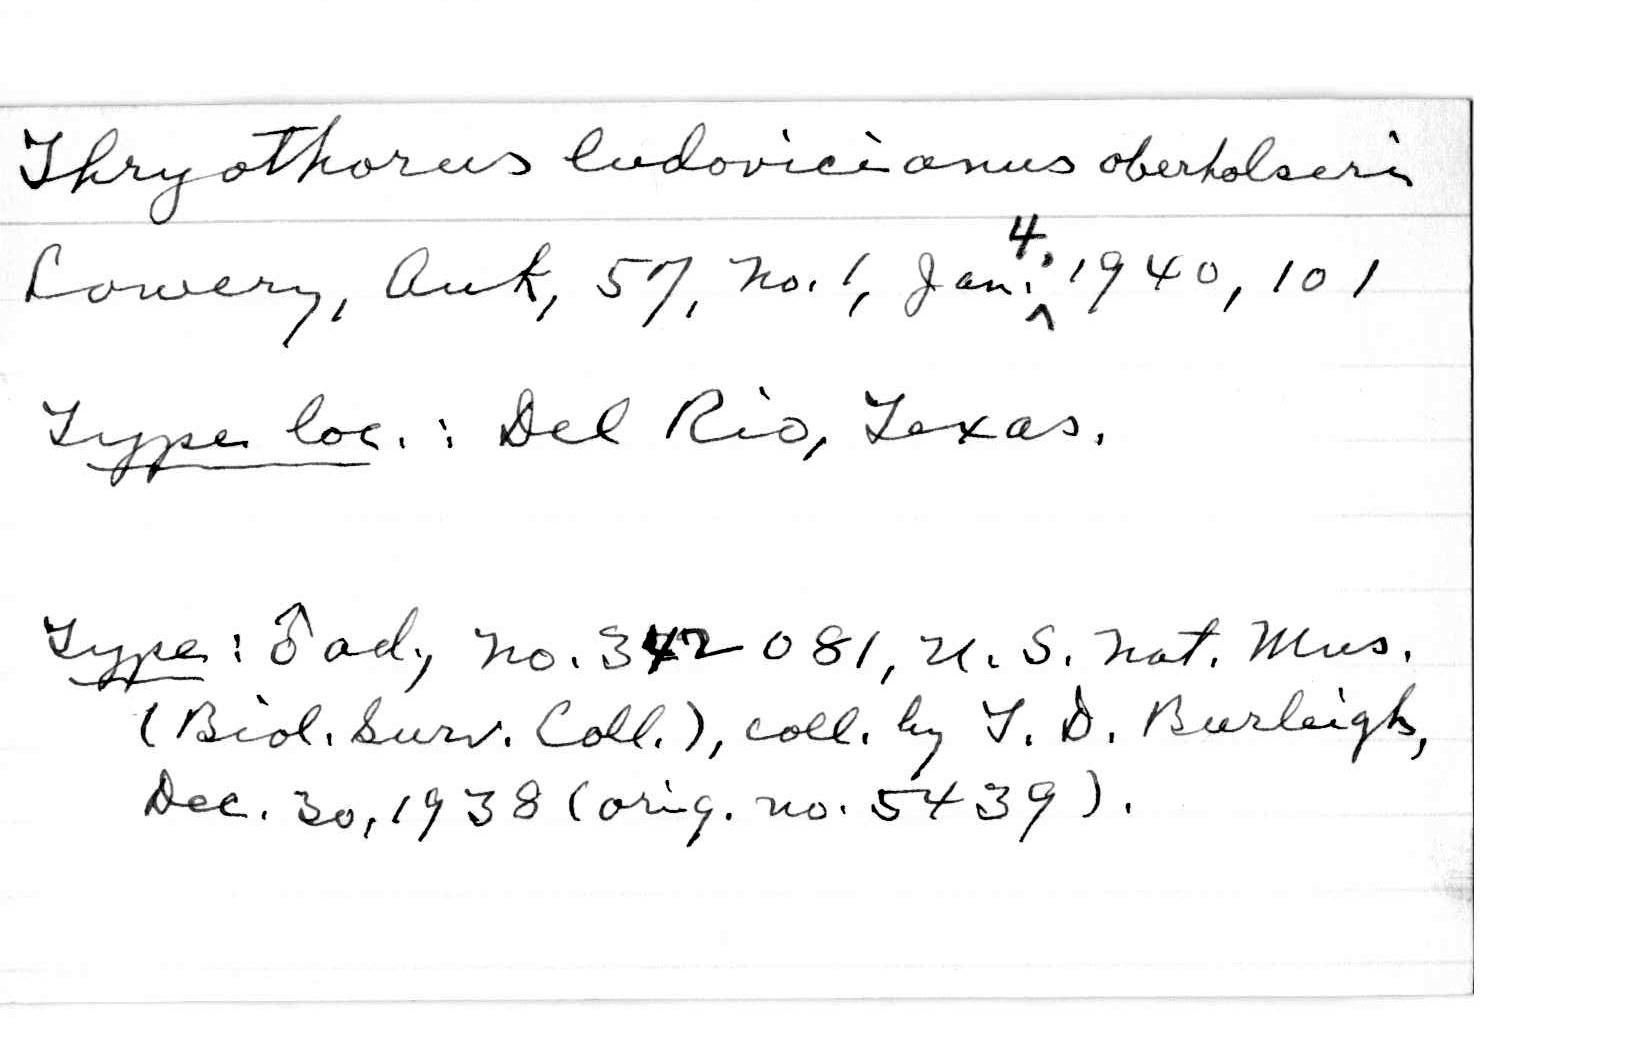 Thryothorus ludovicianus oberholseri
Lowery, Auk, 57, no. 1, Jan. 4, 1940, 101
Type loc.: Del Rio, Texas.
Type: ♂ ad., no. 342081, U. S. Nat. Mus.
(Biol. Surv. Coll.), coll. by T. D. Burleigh,
Dec. 30, 1938 (orig. no. 5439).